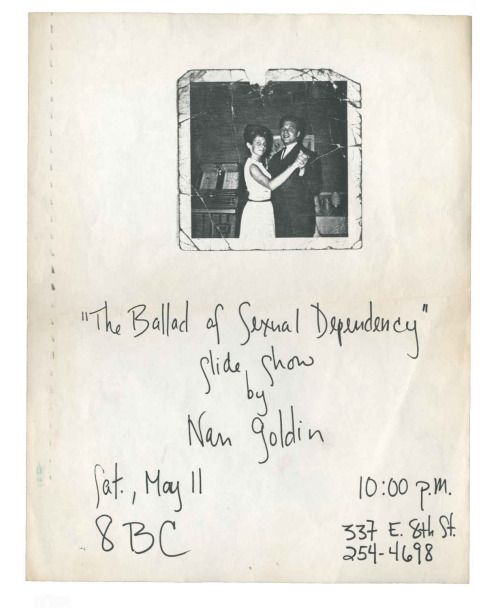 "The Ballad of Sexual Dependency"
slide show
by
Nan Goldin
Sat., May 11
8 BC
10:00 p.m.
337 E. 8th St.
254-4698